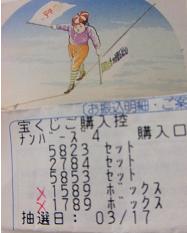 (お振込明細・ご楽
宝くじご購入控
ナンバーズ4 購入口
5823 セット
2784 セット
5853 セット
5823 セット
X 1589 ボックス
X 1789 ボックス
抽選日: 03/17